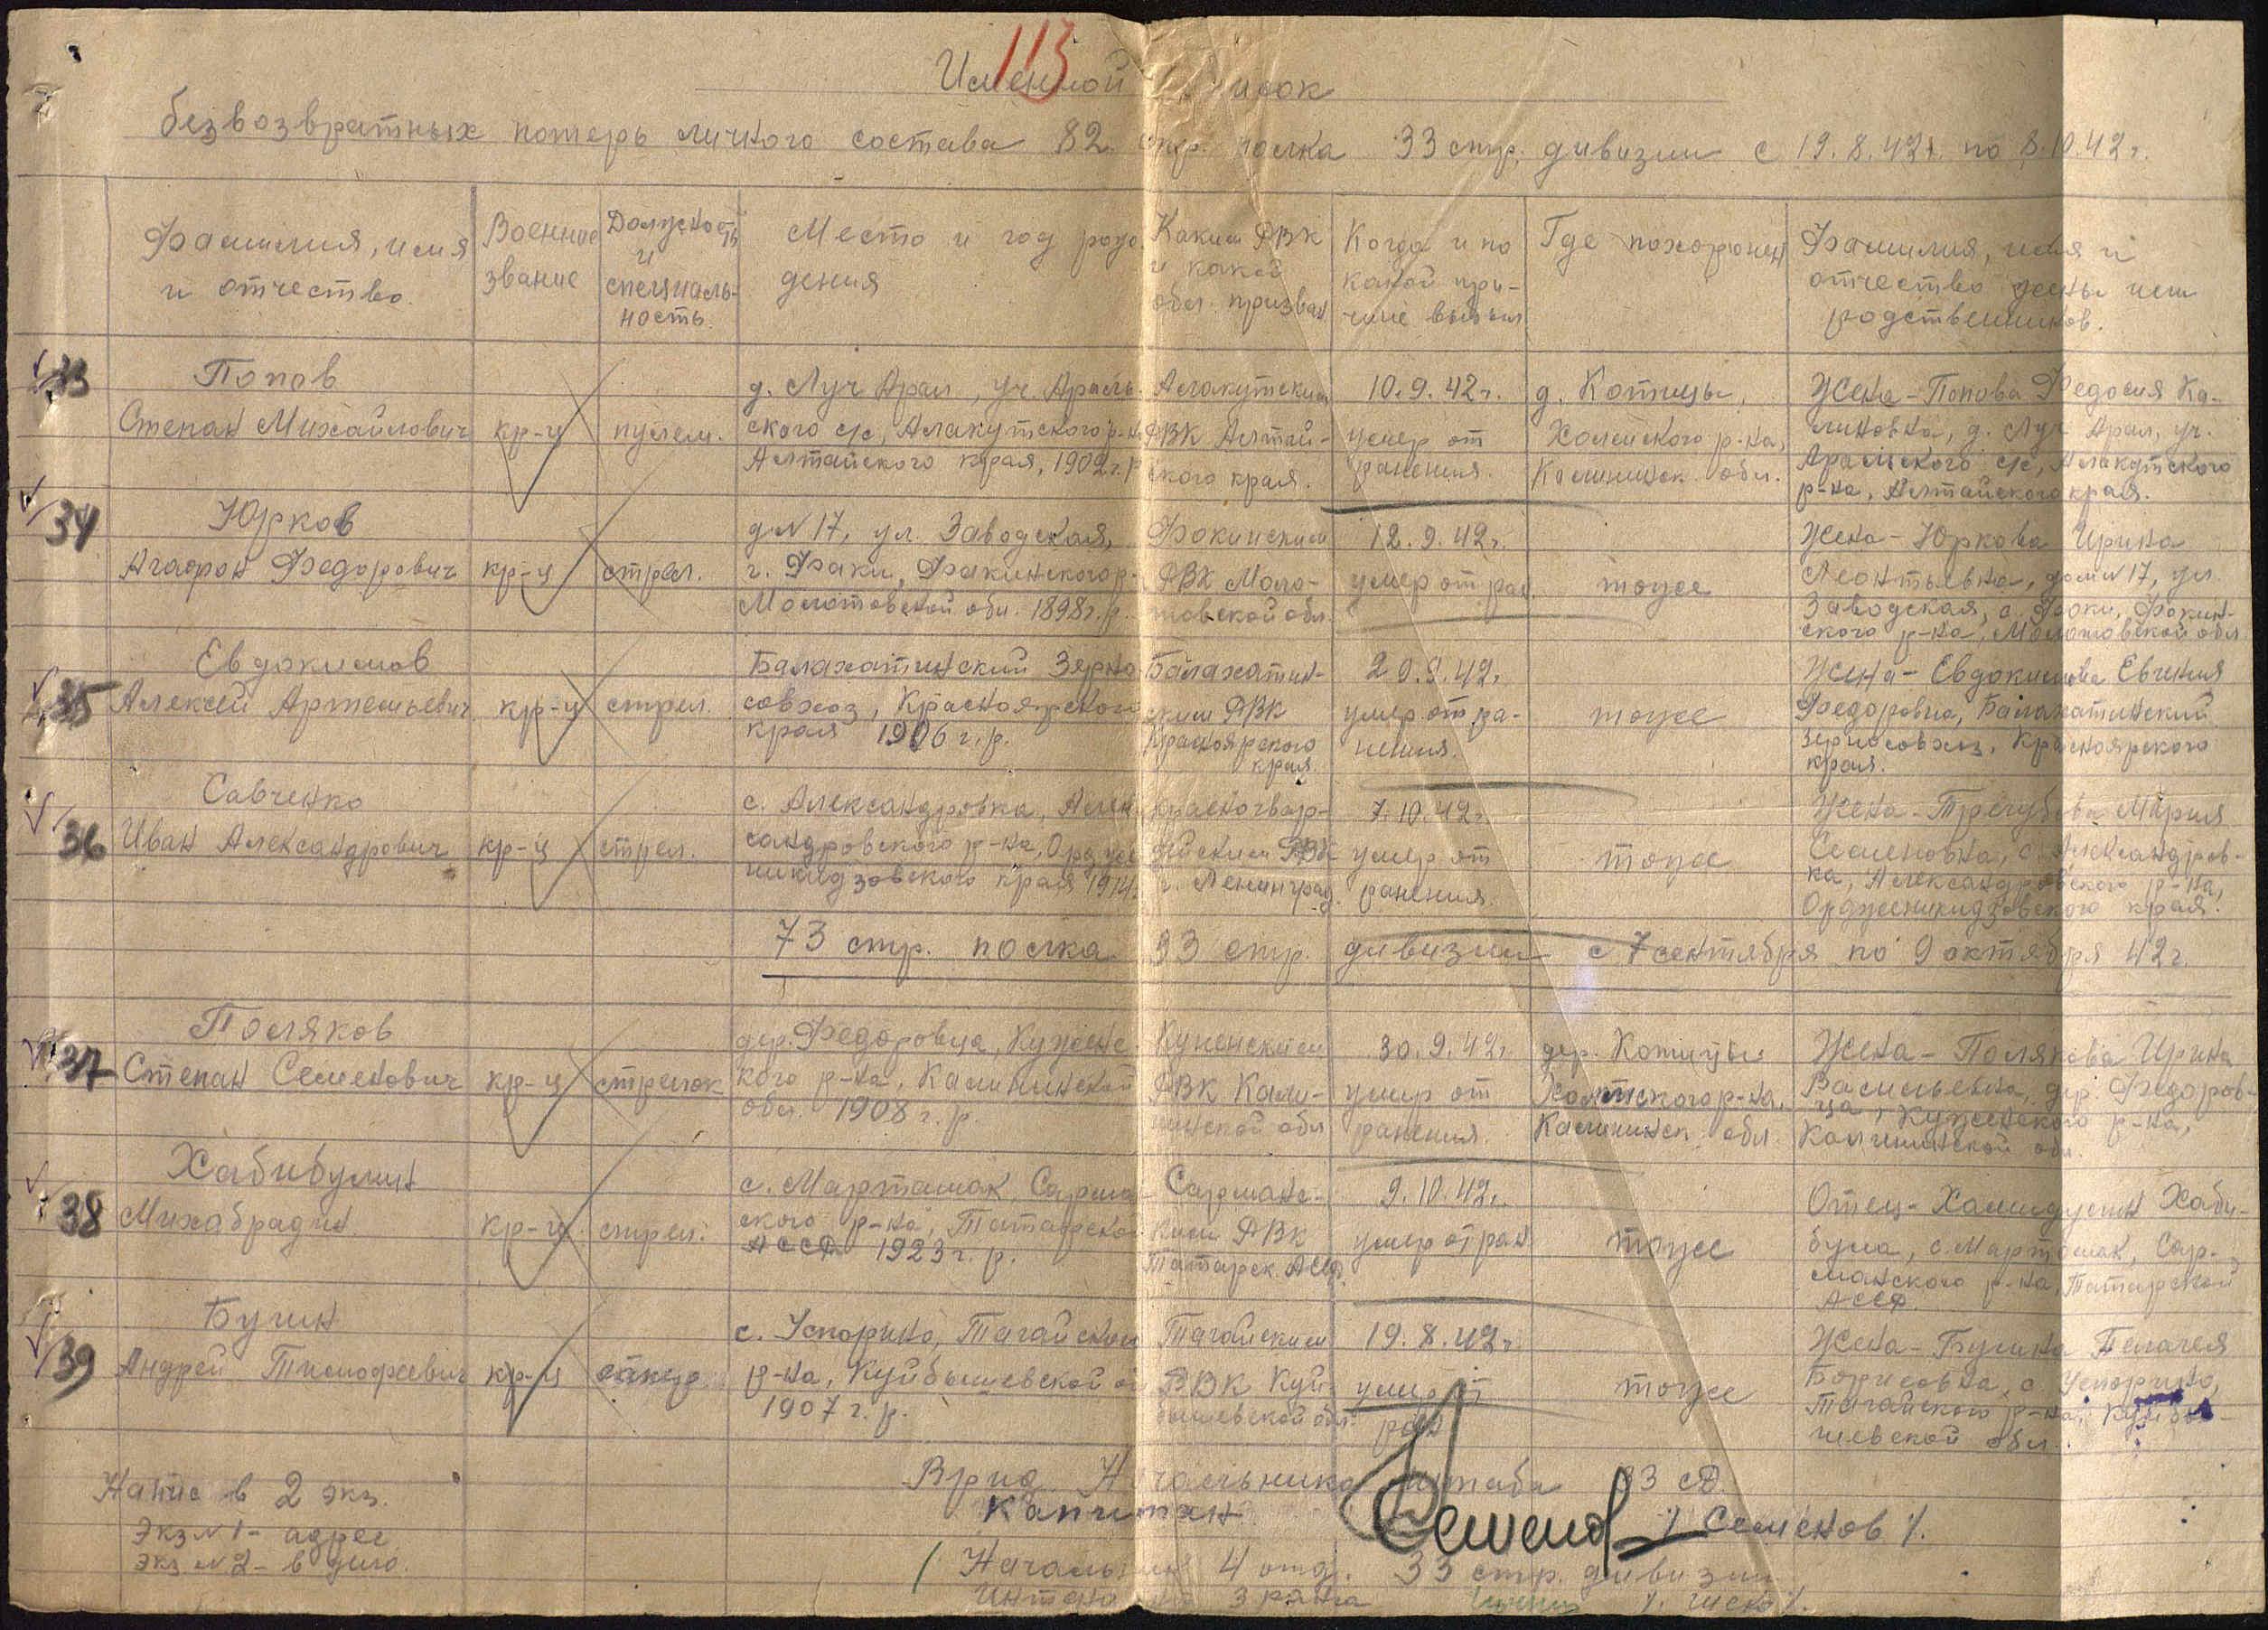 113
Именной список
безвозвратных потерь личного состава 82 стр. полка 33 стр. дивизии с 19.8.42г. по 8.10.42г.
Фамилия, имя и отчество
Военное звание
Должность и специаль-ность.
Место и год рождения
Каким РВК и какой обл. призван
Когда и по какой при-чине выбыл
Где похоронен
Фамилия, имя и отчество жены или родственников.
33
Попов
Степан Михайлович
кр-ц
пулем.
д. Луч Арал, уч. Араль-
ского с/с, Алакутского р-на
Алтайского края, 1902 г.р
Алакутским
РВК Алтай-
ского края.
10.9.42г.
умер от
ранения.
д. Котицы,
Холмского р-на,
Калининск. обл.
Жена - Попова Федосия Ка-
линовна, д. Луч Арал, уч.
Аральского с/с, Алакутского
р-на, Алтайского края.
34
Юрков
Агафон Федорович
кр-ц
стрел.
д N 17, ул. Заводская,
г. Фоки, Фокинского р-
Молотовской обл. 1898г.р.
Фокинским
РВК Моло-
товской обл.
12.9.42г.
умер от ран
тоже
Жена - Юркова Ирина
Леонтьевна, дом N 17, ул.
Заводская, с. Фоки, Фокин-
ского р-на, Молотовской обл
35
Евдокимов
Алексей Артемьевич
кр-ц
стрел.
Балахатинский Зерно
совхоз, Красноярского
края 1906 г.р.
Балахатин-
ским РВК
Красноярского
края.
20.9.42г
умер от ра-
нения.
тоже
Жена - Евдокимова Евгения
Федоровна, Балахатинский
зерносовхоз, Красноярского
края.
36
Савченко
Иван Александрович
кр-ц
стрел.
с. Александровка, Алек-
сандровского р-на, Орджо
никидзовского края 1914г.
Красногвар-
дейским РВК
г. Ленинград.
7.10.42г.
умер от
ранения.
тоже
Жена - Трегубова Мария
Семеновна, с. Александров-
ка, Александровского р-на,
Орджоникидзовского края.
73 стр. полка 33 стр. дивизии с 7 сентября по 9 октября 42г.
37
Поляков
Степан Семенович
кр-ц
стрелок
дер. Федоровца, Куженс
кого р-на, Калининской
обл. 1908 г.р.
Куженским
РВК Кали-
нинской обл
30.9.42г
умер от
ранения.
дер. Котицы
Холмского р-на,
Калининск. обл.
Жена - Полякова Ирина
Васильевна, дер. Федоров-
ца, Куженского р-на,
Калининской обл.
38
Хабибулин
Михабрадин
кр-ц
стрел.
с. Марташак, Сарман-
ского р-на, Татарской
АССР 1923 г.р.
Сарманс-
ким РВК
Татарск. АССР
9.10.42г.
умер от ран
тоже
Отец - Хамидулин Хаби-
була, с. Марташак, Сар-
манского р-на, Татарской
АССР.
39
Бугин
Андрей Тимофеевич
кр-ц
с. Успорино, Тагайского
р-на, Куйбышевской об
1907 г.р.
Тагайским
РВК Куй-
бышевской обл.
19.8.42г.
умер от
ран
тоже
Жена - Бугина Пелагея
Борисовна, с. Успорино,
Тагайского р-на, Куйбы-
шевской обл.
Врид Начальника штаба 33 сд.
Капитан
Семенов / Семенов /.
Напис в 2 экз.
Экз N 1 - адрес
Экз N 2 - в дело.
Начальник 4 отд. 33 стр. дивизии
Интендант 3 ранга